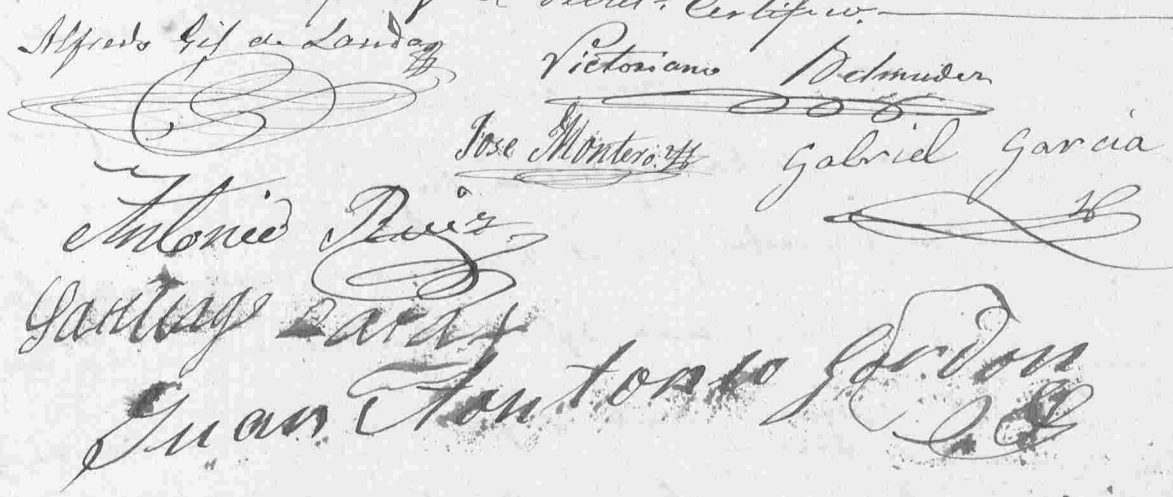 el Secret.º Certifico.
Alfredo Gil de Landa
Victoriano Belmudez
Jose Montero
Gabriel Garcia
Antonio Ruiz
Santiago
Juan Antonio Gordon